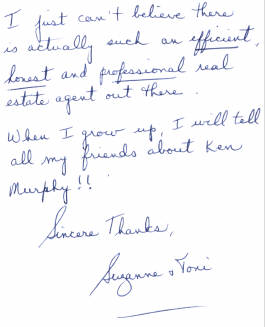 I just can't believe there
is actually such an efficient,
honest and professional real
estate agent out there.
When I grow up, I will tell
all my friends about Ken
Murphy!!
Sincere Thanks,
Suzanne & Toni